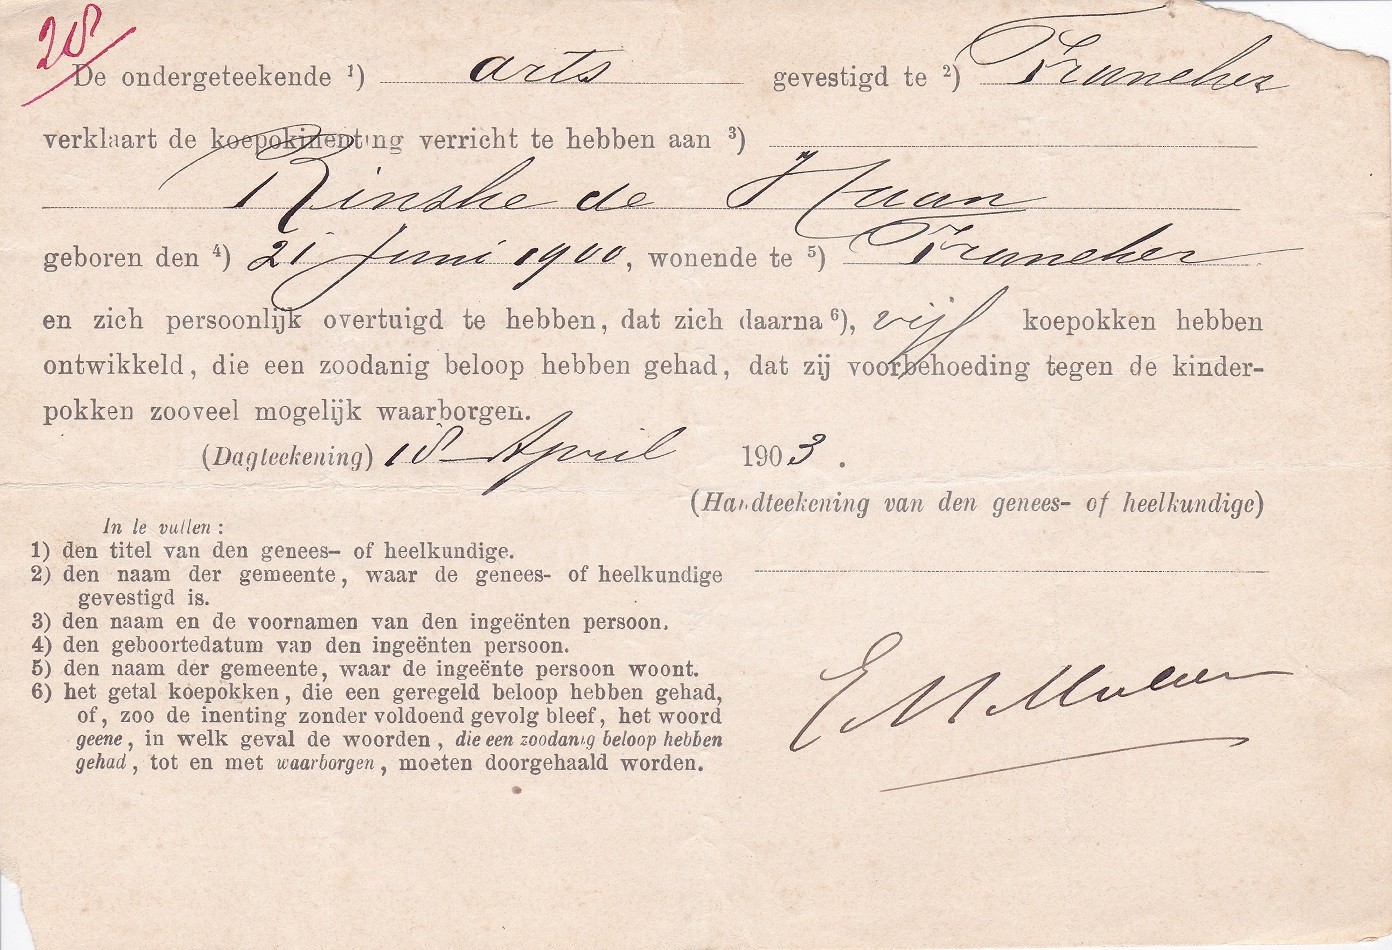 28
De ondergeteekende 1) arts gevestigd te 2) Franeker
verklaart de koepokinenting verricht te hebben aan 3)
Rinske de Haan
geboren den 4) 21 Juni 1900, wonende te 5) Franeker
en zich persoonlijk overtuigd te hebben, dat zich daarna 6), vijf koepokken hebben
ontwikkeld, die een zoodanig beloop hebben gehad, dat zij voorbehoeding tegen de kinder-
pokken zooveel mogelijk waarborgen.
(Dagteekening) 18 April 1903.
(Handteekening van den genees- of heelkundige)
In te vullen:
1) den titel van den genees- of heelkundige.
2) den naam der gemeente, waar de genees- of heelkundige
gevestigd is.
3) den naam en de voornamen van den ingeënten persoon.
4) den geboortedatum van den ingeënten persoon.
5) den naam der gemeente, waar de ingeënte persoon woont.
6) het getal koepokken, die een geregeld beloop hebben gehad,
of, zoo de inenting zonder voldoend gevolg bleef, het woord
geene, in welk geval de woorden, die een zoodanig beloop hebben
gehad, tot en met waarborgen, moeten doorgehaald worden.